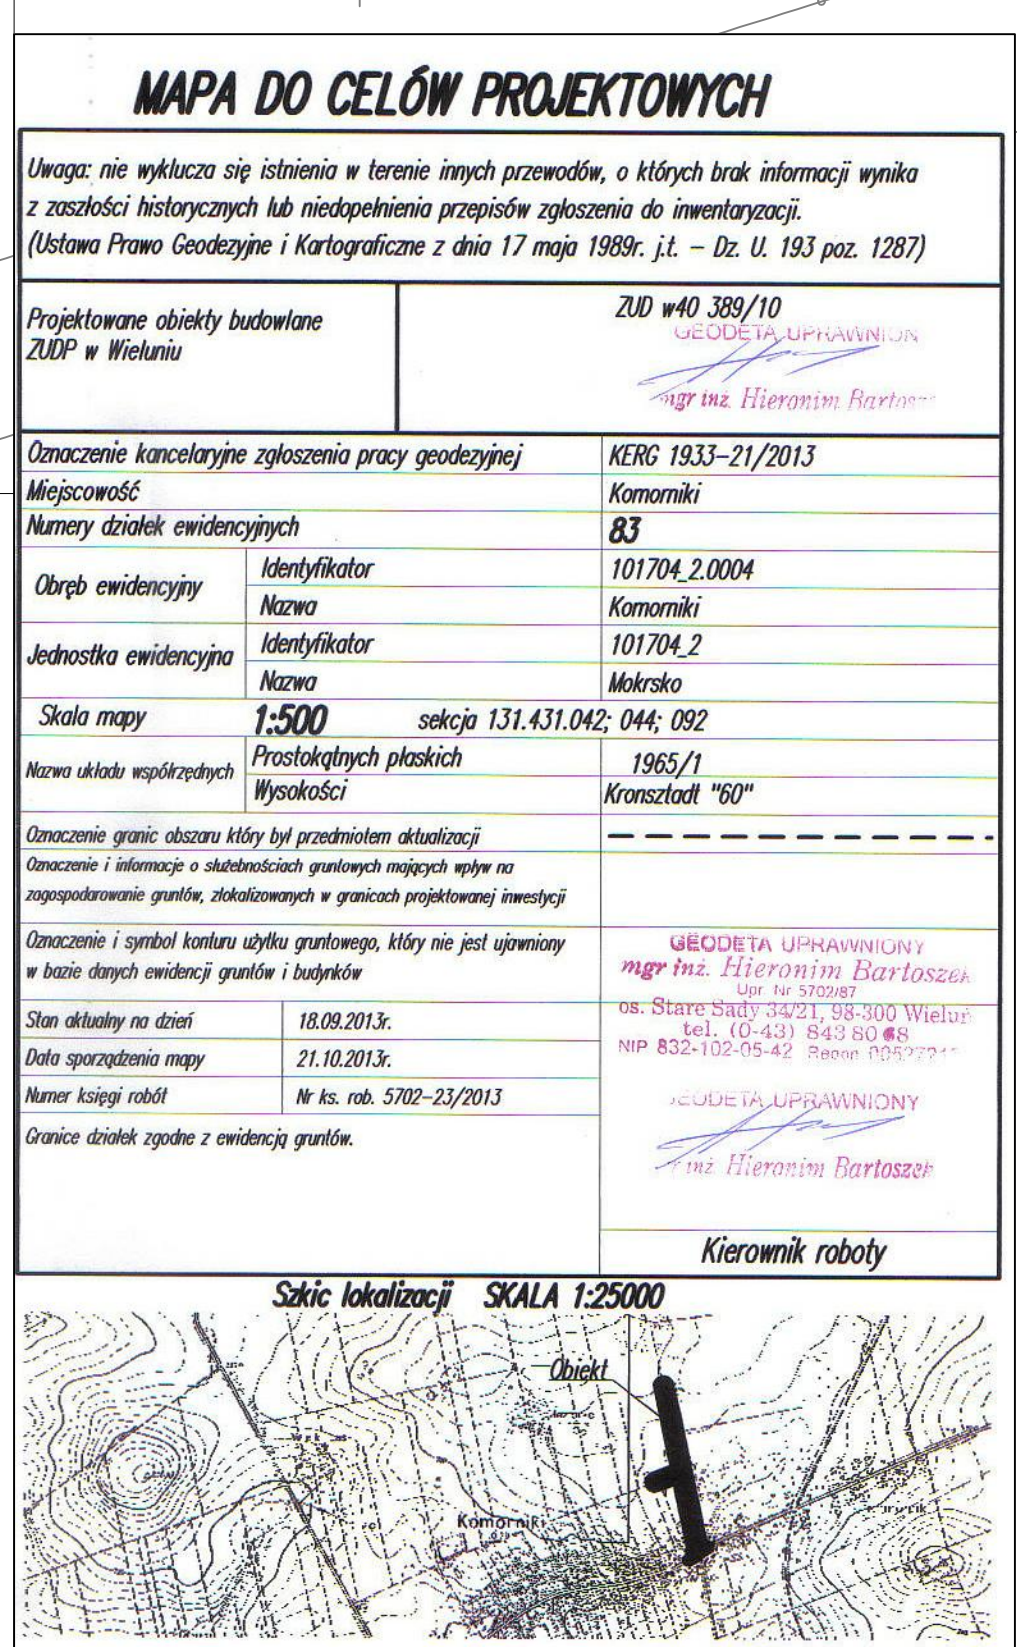 MAPA DO CELÓW PROJEKTOWYCH
Uwaga: nie wyklucza się istnienia w terenie innych przewodów, o których brak informacji wynika
z zaszłości historycznych lub niedopełnienia przepisów zgłoszenia do inwentaryzacji.
(Ustawa Prawo Geodezyjne i Kartograficzne z dnia 17 maja 1989r. j.t. – Dz. U. 193 poz. 1287)
Projektowane obiekty budowlane
ZUDP w Wieluniu
ZUD w40 389/10
GEODETA UPRAWNION
mgr inż. Hieronim Bartosz
Oznaczenie kancelaryjne zgłoszenia pracy geodezyjnej KERG 1933–21/2013
Miejscowość Komorniki
Numery działek ewidencyjnych 83
Obręb ewidencyjny
Identyfikator 101704_2.0004
Nazwa Komorniki
Jednostka ewidencyjna
Identyfikator 101704_2
Nazwa Mokrsko
Skala mapy 1:500 sekcja 131.431.042; 044; 092
Nazwa układu współrzędnych
Prostokątnych płaskich 1965/1
Wysokości Kronsztadt "60"
Oznaczenie granic obszaru który był przedmiotem aktualizacji
Oznaczenie i informacje o służebnościach gruntowych mających wpływ na
zagospodarowanie gruntów, zlokalizowanych w granicach projektowanej inwestycji
Oznaczenie i symbol konturu użytku gruntowego, który nie jest ujawniony
w bazie danych ewidencji gruntów i budynków
GEODETA UPRAWNIONY
mgr inż. Hieronim Bartoszek
Upr. Nr 5702/87
os. Stare Sady 34/21, 98-300 Wieluń
tel. (0-43) 843 80 68
NIP 832-102-05-42 Regon
Stan aktualny na dzień 18.09.2013r.
Data sporządzenia mapy 21.10.2013r.
Numer księgi robót Nr ks. rob. 5702–23/2013
Granice działek zgodne z ewidencją gruntów.
GEODETA UPRAWNIONY
r inż. Hieronim Bartoszek
Kierownik roboty
Szkic lokalizacji SKALA 1:25000
Obiekt
Komorniki